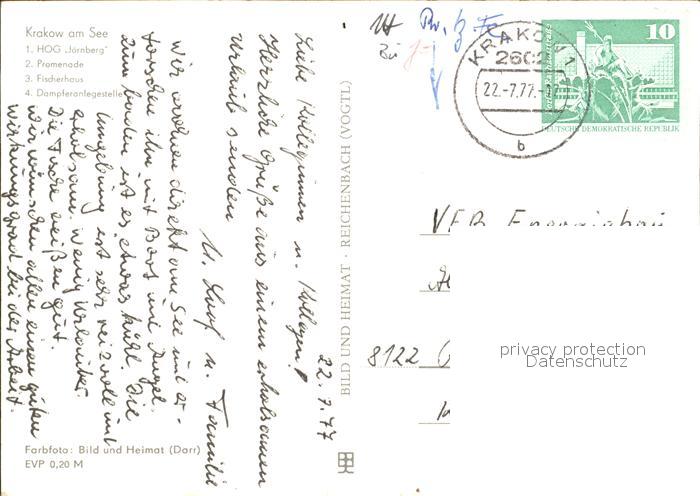 Krakow am See
1. HOG „Jörnberg"
2. Promenade
3. Fischerhaus
4. Dampferanlegestelle
22.7.77
Liebe Kolleginnen u. Kollegen!
Herzliche Grüße aus einem erholsamen
Urlaub senden
u. Familie
Wir wohnen direkt am See und er-
forschen ihn mit Boot und Angel.
Zum baden ist es etwas kühl. Die
Umgebung ist sehr reizvoll und
erholsam. Wenig Urlauber.
Die Fische beißen gut.
Wir wünschen allen einen guten
Wirkungsgrad bei der Arbeit.
Farbfoto: Bild und Heimat (Darr)
EVP 0,20 M
BILD UND HEIMAT · REICHENBACH (VOGTL)
KRAKOW 1
2602
22.-7.77.-
b
10
DEUTSCHE DEMOKRATISCHE REPUBLIK
VEB Energiebau
8122
privacy protection
Datenschutz